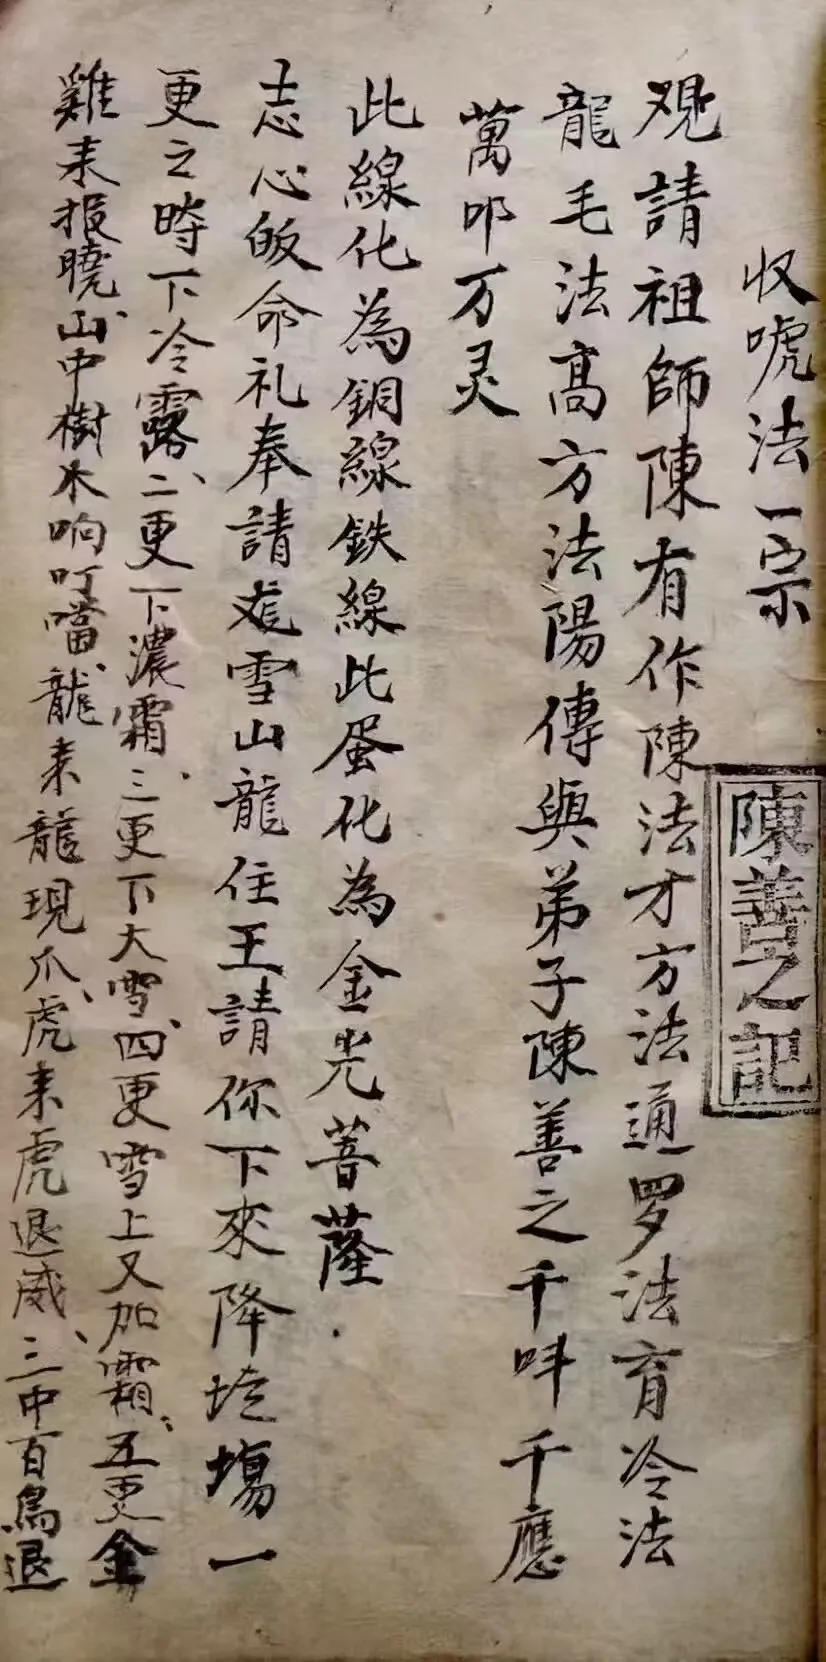 收唬法一宗
陳善之記
观請祖師陳有作陳法才方法通罗法育冷法
龍毛法高方法陽傳與弟子陳善之千吽千應
萬叩万灵
此線化為銅線鉄線此蛋化為金光菩薩
志心皈命礼奉請雪山龍住王請你下來降坛塲一
更之時下冷露、二更下濃霜、三更下大雪、四更雪上又加霜、五更金
雞来报曉、山中樹木响叮噹、龍来龍現爪、虎来虎退威、三中百鳥退